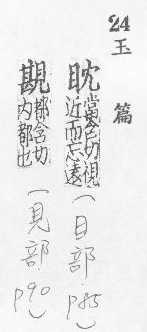 24
玉篇
眈
當含切視
近而志遠
(目部 P85)
覩
都含切
內都也
(見部 P90)